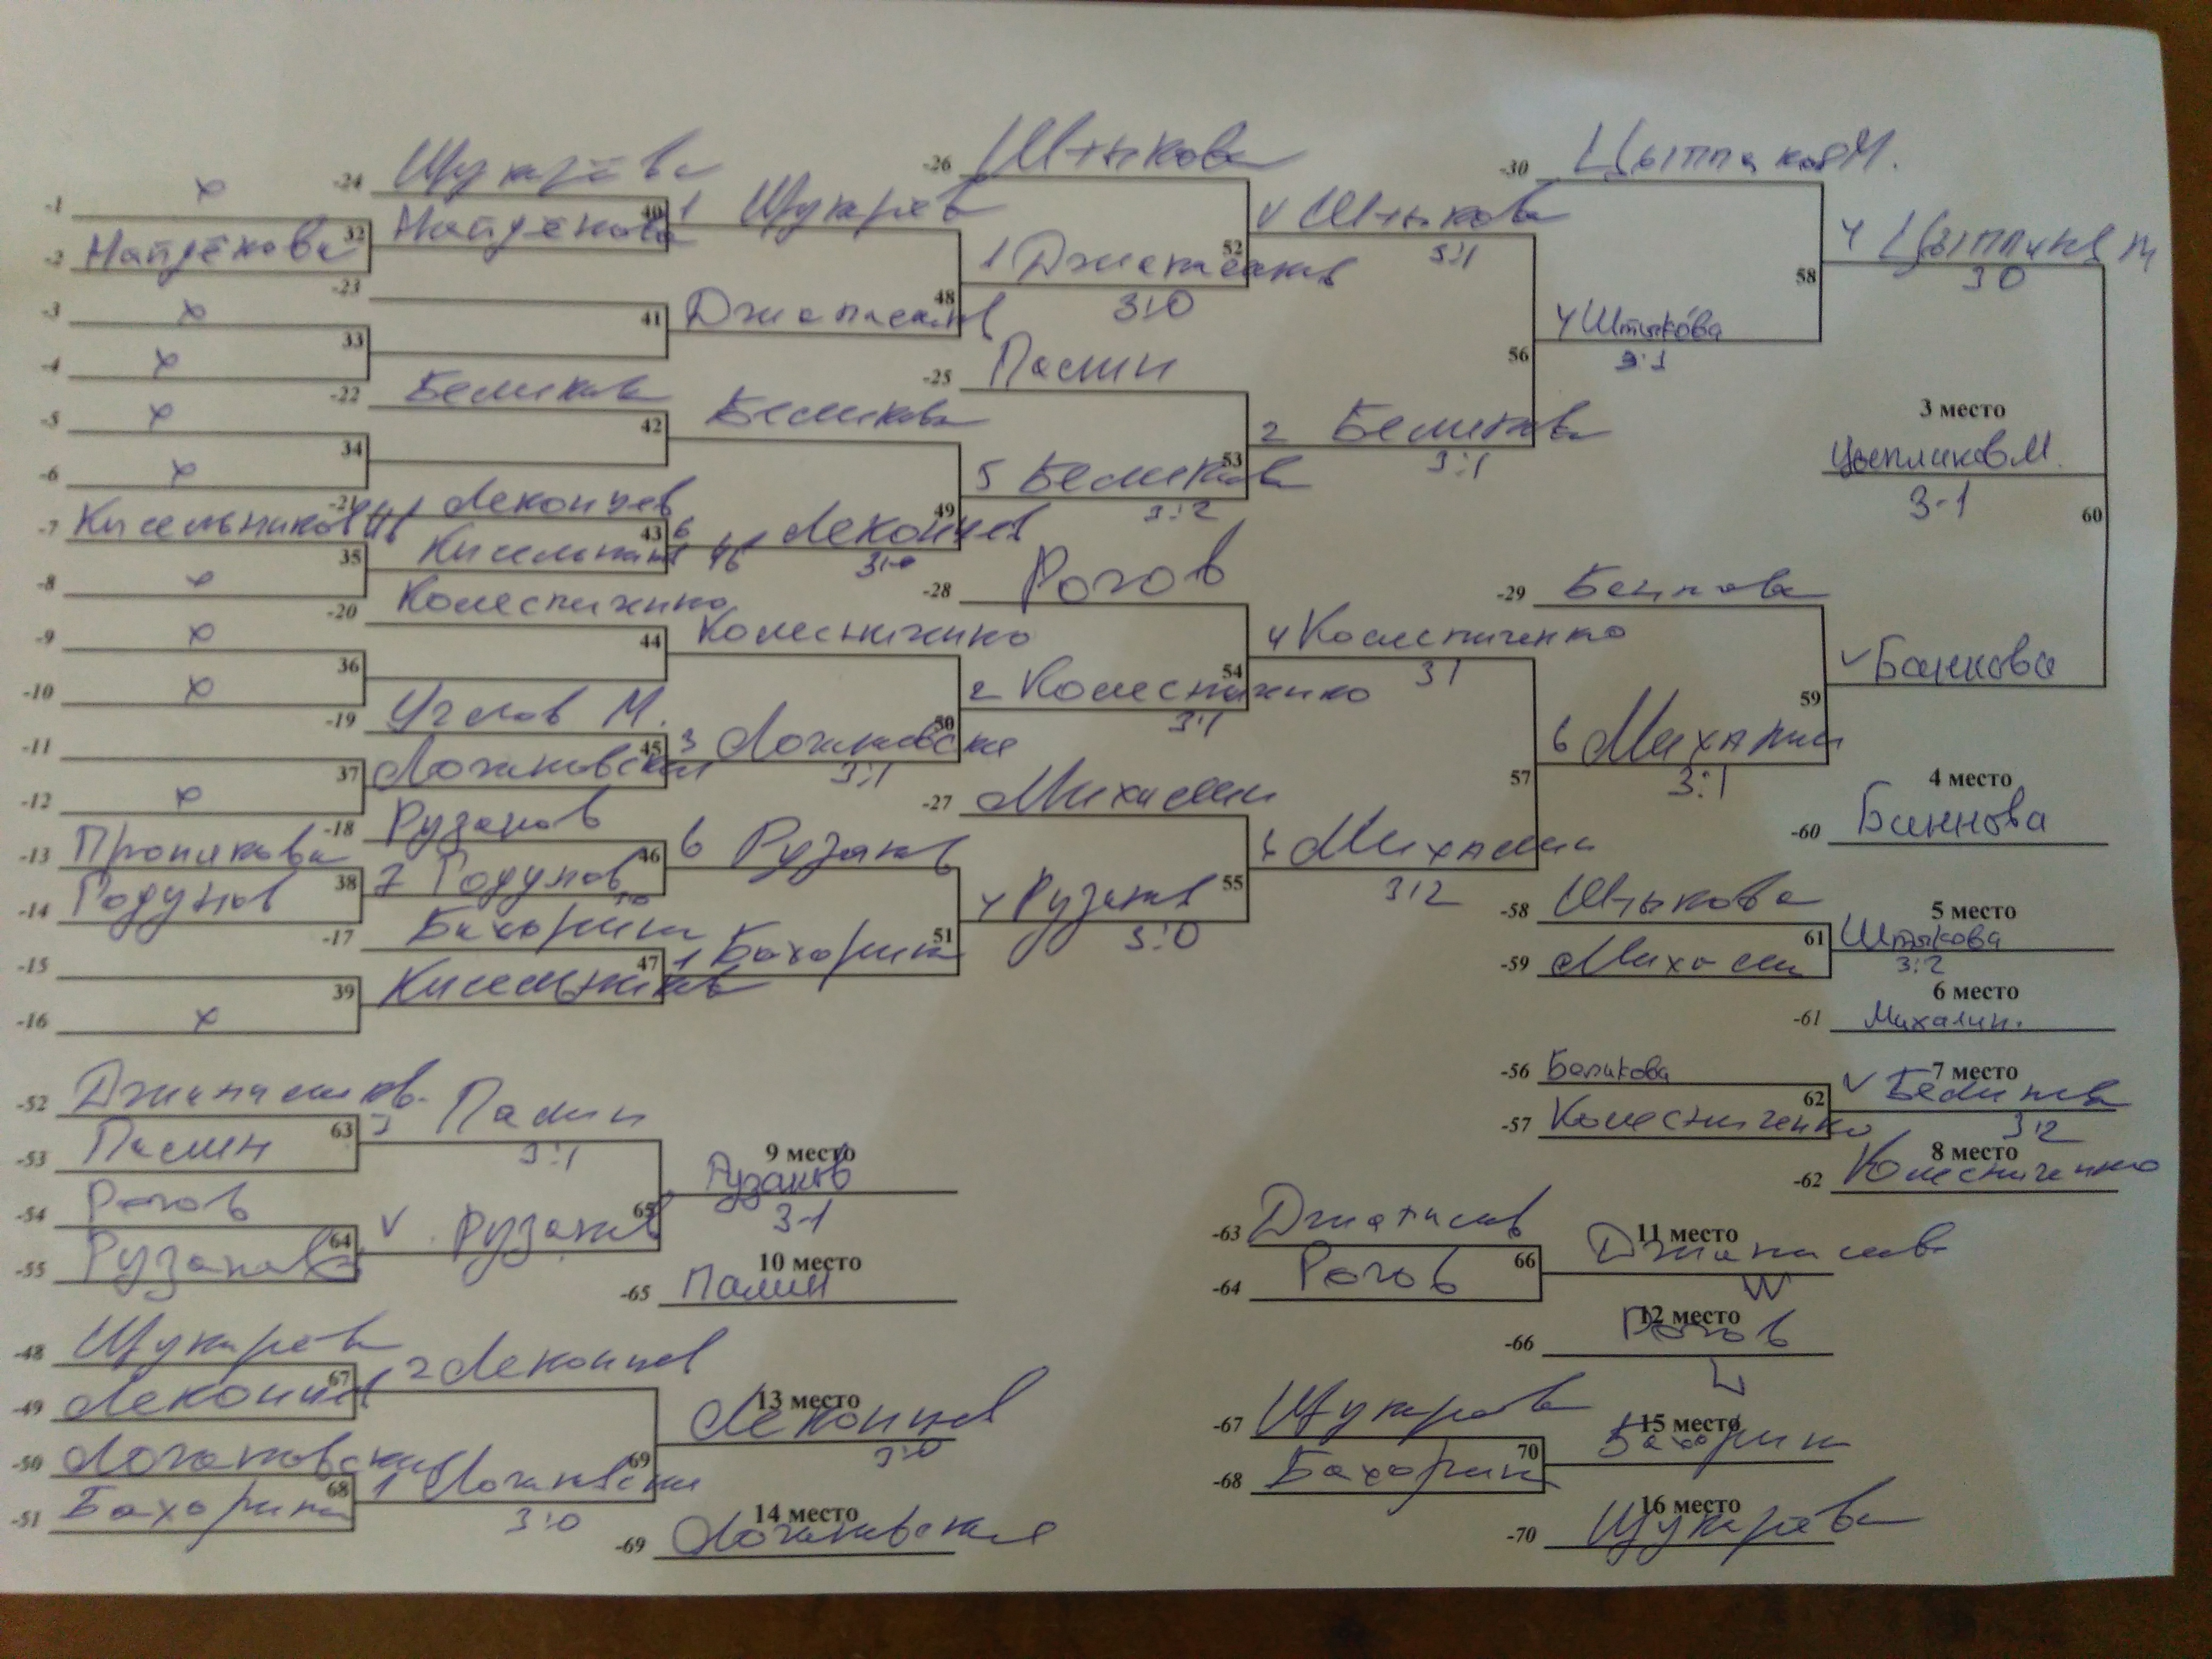 -1 х
-2 Найдёнова
32
-3 х
-4 х
33
-5 х
-6 х
34
-7 Кисельников
-8 х
35
-9 х
-10 х
36
-11
-12 х
37
-13
-14 Годунов
38
-15
-16 х
39
-24 Щукарёва
Найдёнова
40
-23
41
-22 Беликова
42
-21 Лекомцев
43
-20 Колесниченко
44
-19 Углов М.
45
-18 Рузанов
7 Годунов
46
-17 Бахорина
47
1 Щукарёв
48
Беликова
6 Лекомцев
3:0
49
Колесниченко
3
3:1
50
6 Рузанов
1 Бахорин
51
-26 Штыкова
1
3:0
52
-25 Палин
5 Беликова
3:2
53
-28 Рогов
2 Колесниченко
3:1
54
-27 Михалин
4 Рузанов
3:0
55
Штыкова
3:1
2 Беликова
3:1
56
4 Колесниченко
3 1
Михалин
3:2
57
-30
4 Штыкова
3:1
58
-29
6 Михалин
3:1
59
4
3 0
Баннова
60
3 место
Цыпликов М.
3-1
4 место
-60 Баннова
-58 Штыкова
-59 Михалин
61
5 место
Штыкова
3:2
6 место
-61 Михалин.
-56 Беликова
-57 Колесниченко
62
7 место
Беликова
3:2
8 место
-62 Колесниченко
-52
-53 Палин
63
Палин
3:1
-54 Рогов
-55 Рузанов
64
Рузанов
65
9 место
Рузанов
3-1
10 место
-65 Палин
-63
-64 Рогов
66
11 место
W
12 место
-66 Рогов
L
-48 Щукарёва
-49 Лекомцев
67
2 Лекомцев
-50
-51 Бахорина
68
1
3:0
69
13 место
Лекомцев
3:0
14 место
-69
-67 Щукарёва
-68 Бахорин
70
15 место
Бахорин
16 место
-70 Щукарёва